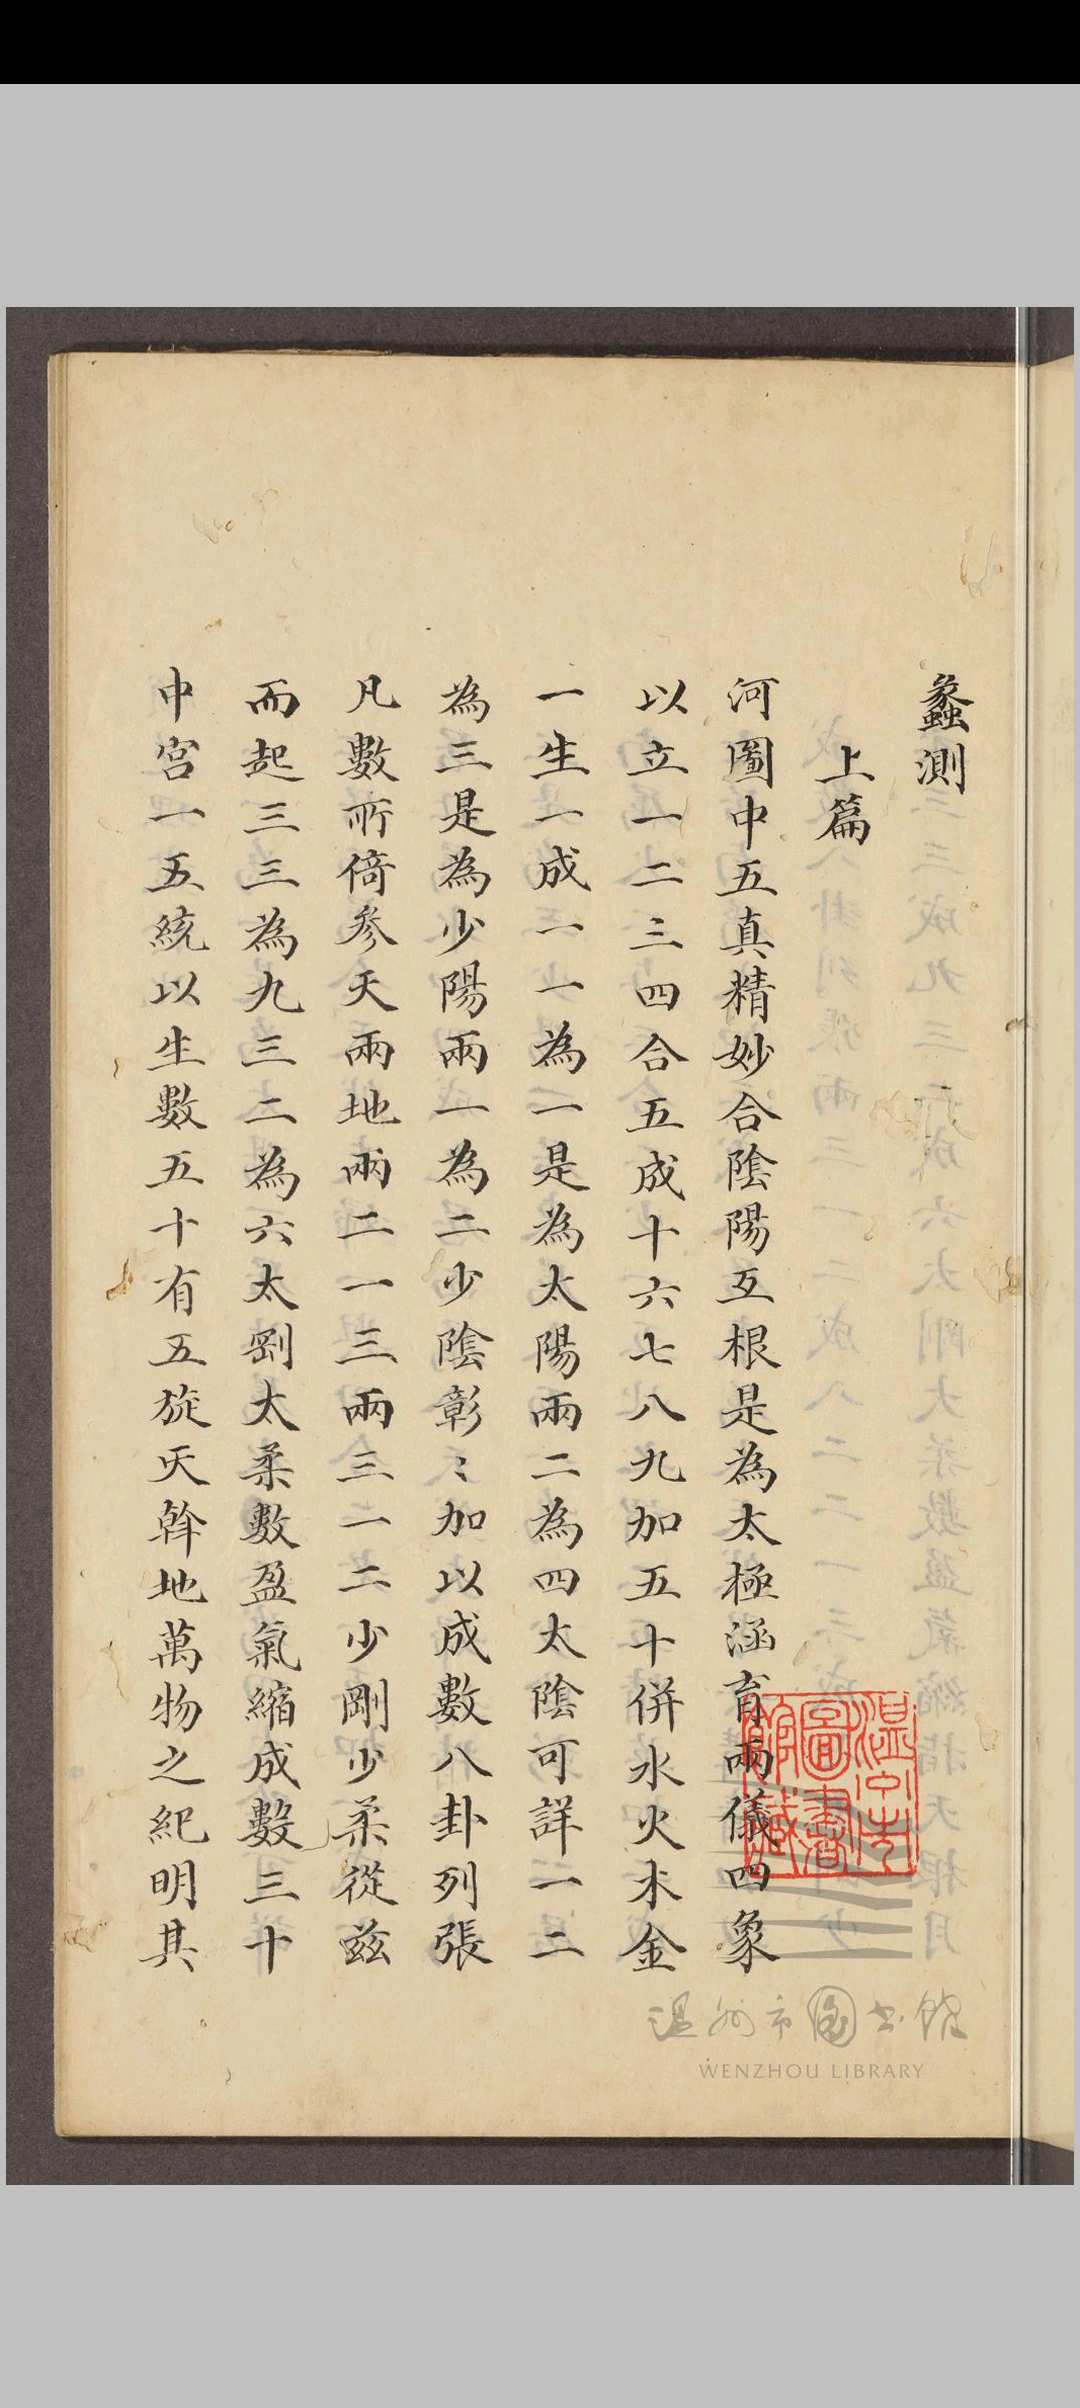 蠡測
上篇
河圖中五真精妙合陰陽互根是為太極涵育兩儀四象
以立一二三四合五成十六七八九加五十併水火木金
一生一成一一為一是為太陽兩二為四太陰可詳一二
為三是為少陽兩一為二少陰彰〻加以成數八卦列張
凡數所倚参天兩地兩二一三兩三一二少剛少柔從兹
而起三三為九三二為六太剛太柔數盈氣縮成數三十
中宮一五統以生數五十有五旋天斡地萬物之紀明其
溫州市圖書館藏
温州市图书馆
WENZHOU LIBRARY